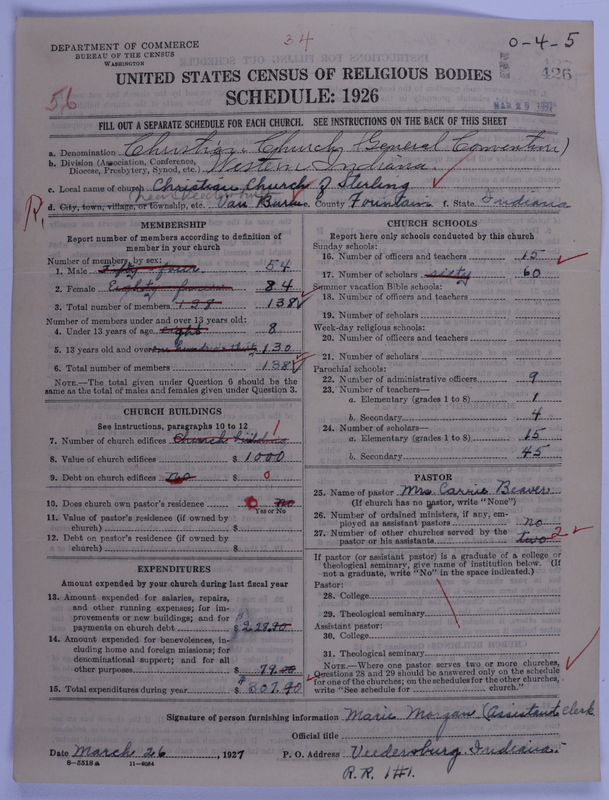 34
O-4-5
DEPARTMENT OF COMMERCE
BUREAU OF THE CENSUS
WASHINGTON
426
UNITED STATES CENSUS OF RELIGIOUS BODIES
MAR 29
56
SCHEDULE: 1926
FILL OUT A SEPARATE SCHEDULE FOR EACH CHURCH. SEE INSTRUCTIONS ON THE BACK OF THIS SHEET
a. Denomination Christian Church (General Convention)
b. Division (Association, Conference, Diocese, Presbytery, Synod, etc.) Western Indiana
c. Local name of church Christian Church of Sterling
(near Veedersburg)
R. d. City, town, village, or township, etc. Van Buren e. County Fountain f. State Indiana
MEMBERSHIP
Report number of members according to definition of
member in your church
Number of members by sex:
1. Male fifty four 54
2. Female Eighty four 84
3. Total number of members 138 138
Number of members under and over 13 years old:
4. Under 13 years of age eight 8
5. 13 years old and over one hundred thirty 130
6. Total number of members 138
NOTE.—The total given under Question 6 should be
the same as the total of males and females given under Question 3.
CHURCH BUILDINGS
See instructions, paragraphs 10 to 12
7. Number of church edifices Church building 1
8. Value of church edifices $ 1000
9. Debt on church edifices no $ 0
10. Does church own pastor's residence 0 no
Yes or No
11. Value of pastor's residence (if owned by
church) $
12. Debt on pastor's residence (if owned by
church) $
EXPENDITURES
Amount expended by your church during last fiscal year
13. Amount expended for salaries, repairs,
and other running expenses; for im-
provements or new buildings; and for
payments on church debt $ 228.90
14. Amount expended for benevolences, in-
cluding home and foreign missions; for
denominational support; and for all
other purposes $ 79.00
15. Total expenditures during year $ 307.90
CHURCH SCHOOLS
Report here only schools conducted by this church
Sunday schools:
16. Number of officers and teachers 15
17. Number of scholars sixty 60
Summer vacation Bible schools:
18. Number of officers and teachers
19. Number of scholars
Week-day religious schools:
20. Number of officers and teachers
21. Number of scholars
Parochial schools:
22. Number of administrative officers 9
23. Number of teachers—
a. Elementary (grades 1 to 8) 1
b. Secondary 4
24. Number of scholars—
a. Elementary (grades 1 to 8) 15
b. Secondary 45
PASTOR
25. Name of pastor Mrs Carrie Beaver
(If church has no pastor, write "None")
26. Number of ordained ministers, if any, em-
ployed as assistant pastors no
27. Number of other churches served by the
pastor or his assistants two 2
If pastor (or assistant pastor) is a graduate of a college or
theological seminary, give name of institution below. (If
not a graduate, write "No" in the space indicated.)
Pastor:
28. College
29. Theological seminary
Assistant pastor:
30. College
31. Theological seminary
NOTE.—Where one pastor serves two or more churches,
Questions 28 and 29 should be answered only on the schedule
for one of the churches; on the schedules for the other churches,
write "See schedule for church."
Signature of person furnishing information Marie Morgan (Assistant Clerk
Official title
Date March 26, 1927 P. O. Address Veedersburg, Indiana.
8-5518a 11-9064
R.R. 1#1.